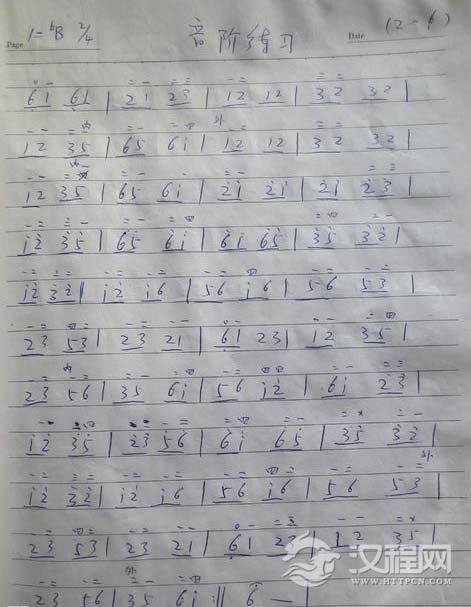 Page 1=ᵇB 2/4 音阶练习 Date (2-6)
61 61 | 21 23 | 12 12 | 32 32 |
12 35 | 65 6i | 12 12 | 32 32 |
12 35 | 65 6i | 2i 2i | 2i 23 |
i2 35 | 65 6i | 6i 65 | 35 32 |
i2 32 | i2 i6 | 56 i6 | 56 53 |
23 53 | 23 21 | 61 23 | 12 35 |
23 56 | 35 6i | 56 i2 | 6i 23 |
i2 35 | 23 56 | 6i 65 | 35 32 |
i2 32 | i2 i6 | 56 i6 | 56 53 |
23 53 | 23 21 | 61 23 | 12 35 |
23 56 | 35 6i :|| 6 — |
汉程网
WWW.HTTPCN.COM